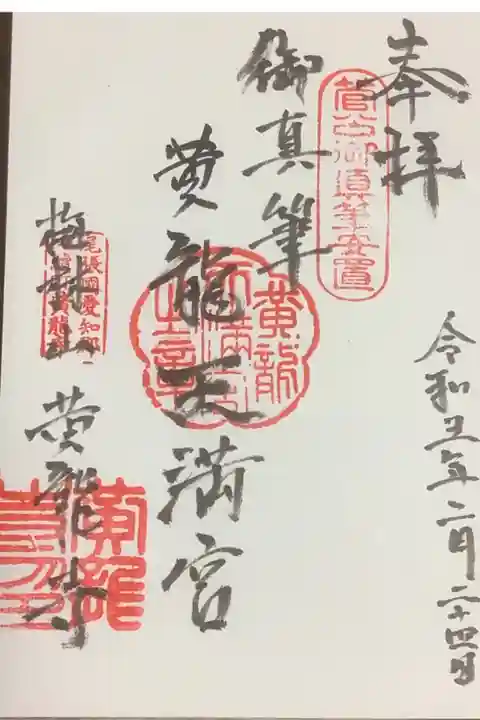 奉拝
菅公御真筆安置
令和五年二月二十四日
御真筆
黄龍天満宮
黄龍
天満宮
之章
梅林山
尾張國愛知郡
黄龍寺
黄龍